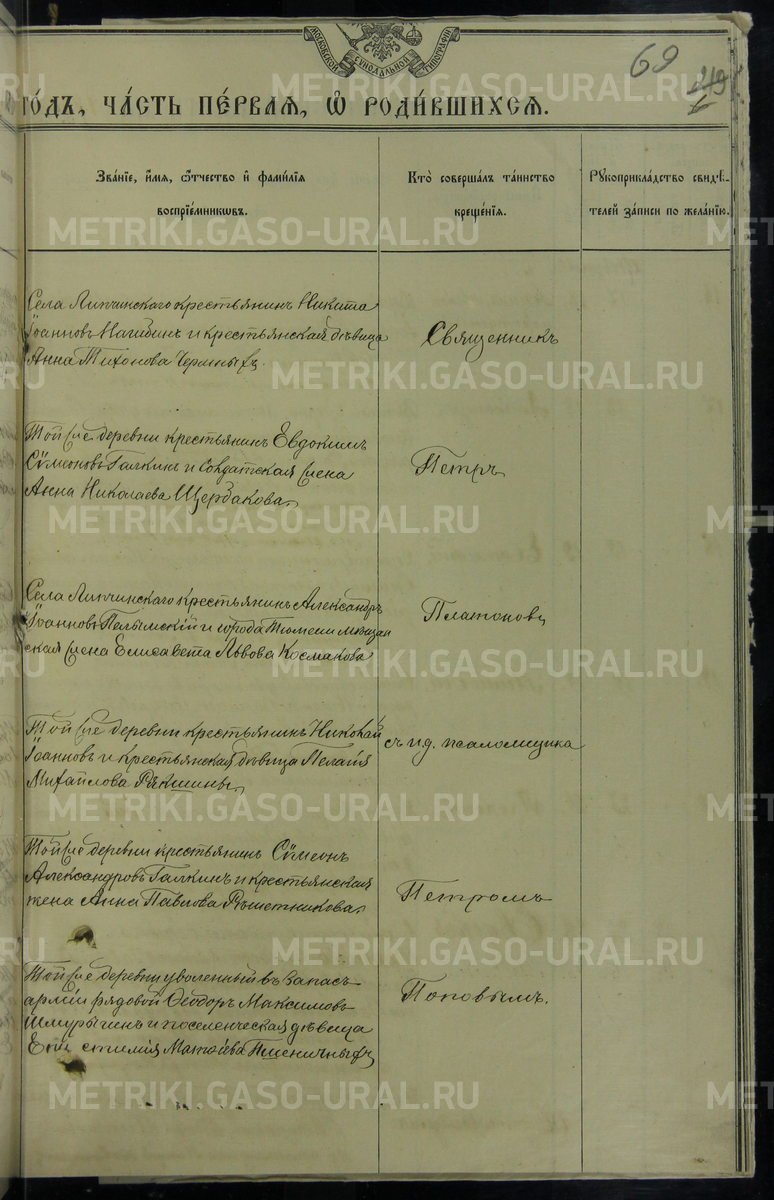 МОСКОВСКОЙ СѴНОДАЛЬНОЙ ТИПОГРАФІИ
69
249
ГО́ДЪ, ЧА́СТЬ ПЕ́РВАЯ, Ѡ҆ РОДИ́ВШИХСЯ.
Зва́ніе, и҆́мя, ѻ҆́тчество и҆ фами́лія
воспріе́мниковъ.
Кто̀ соверша́лъ та́инство
креще́нія.
Рꙋкоприкла́дство свидѣ-
телей за́писи по жела́нію.
Села Липчинскаго крестьянинъ Никита
Іоанновъ Нагибинъ и крестьянская дѣвица
Анна Тихонова Черныхъ.
Священникъ
Той же деревни крестьянинъ Евдокимъ
Сѵмеоновъ Галкинъ и Солдатская жена
Анна Николаева Щербакова.
Петръ
Села Липчинскаго крестьянинъ Александръ
Іоанновъ Пелымскій и города Тюмени мѣщан
ская жена Елисавета Львова Космакова
Платоновъ
Той же деревни крестьянинъ Николай
Іоанновъ и крестьянская дѣвица Пелагія
Михайлова Рякшины.
съ и.д. псаломщика
Той же деревни крестьянинъ Сѵмеонъ
Александровъ Галкинъ и крестьянская
жена Анна Павлова Рѣшетникова.
Петромъ
Той же деревни уволенный въ запасъ
арміи рядовой Ѳеодоръ Максимовъ
Шмурыгинъ и поселенческая дѣвица
Матѳіева Пшеничныхъ
Поповымъ.
METRIKI.GASO-URAL.RU